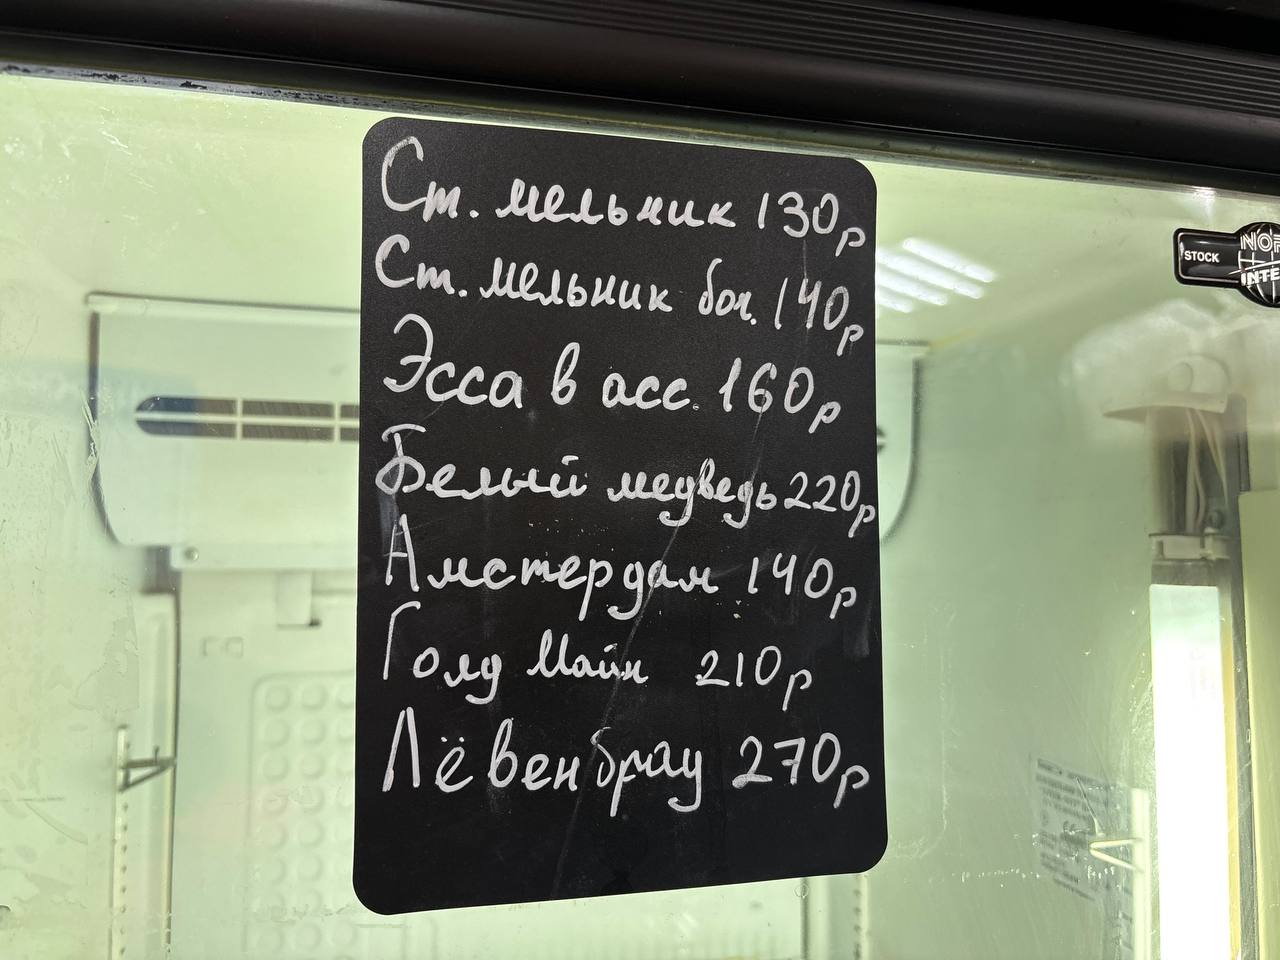 Ст. мельник 130р
Ст. мельник боч. 140р
Эсса в асс. 160р
Белый медведь 220р
Амстердам 140р
Голд Майн 210р
Лёвенбрау 270р
STOCK
INTE